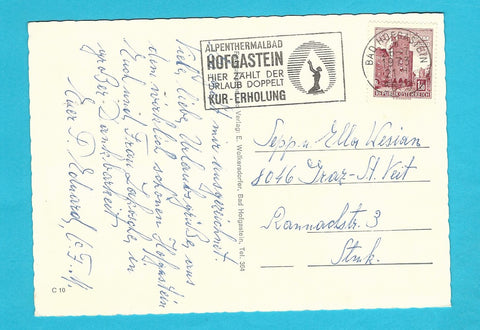 ALPENTHERMALBAD
HOFGASTEIN
HIER ZÄHLT DER
URLAUB DOPPELT
KUR-ERHOLUNG
BAD HOFGASTEIN
REPUBLIK ÖSTERREICH
Viele liebe Urlaubsgrüße aus
dem wirklich schönen Hofgastein
Euch und Frau
großer Dankbarkeit
Euer P. Eduard,
mir ausgezeichnet.
Verlag: E. Wolkersdorfer, Bad Hofgastein, Tel. 304
C 10
Sepp u Ella Wesian
8046 Graz-St. Veit
Rannachstr. 3
Stmk.